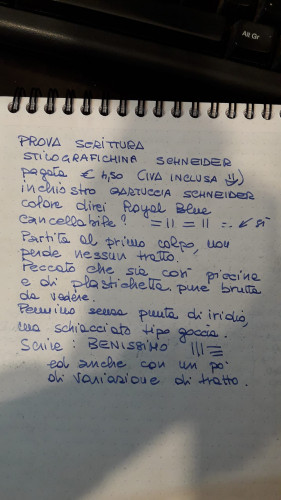 Alt Gr
PROVA SCRITTURA
STILOGRAFICHINA SCHNEIDER
pagata € 4,50 (IVA INCLUSA
inchiostro CARTUCCIA SCHNEIDER
colore direi Royal Blue
cancellabile? = 11 = 11 =. ↙ sì
Partita al primo colpo, non
perde nessun tratto.
Peccato che sia così piccina
e di plastichetta pure brutta
da vedere.
Pennino senza punta di iridio,
ma schiacciato tipo goccia.
Scrive: BENISSIMO
ed anche con un po'
di variazione di tratto.